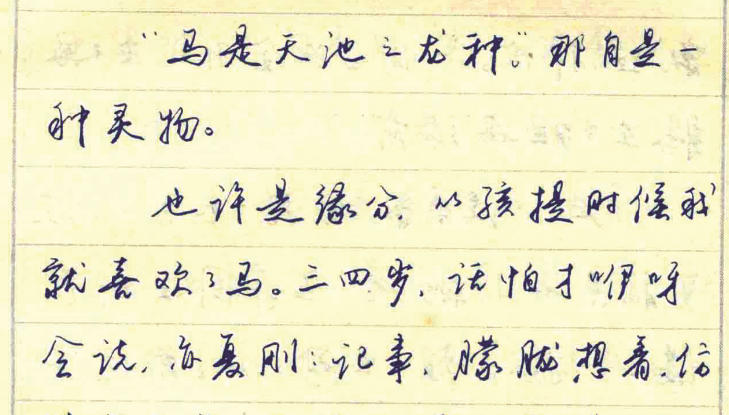 “马是天池之龙种。”那自是一
种灵物。
也许是缘分，从孩提时候我
就喜欢了马。三四岁，话怕才咿呀
会说，亦刚刚记事，朦胧想着，仿